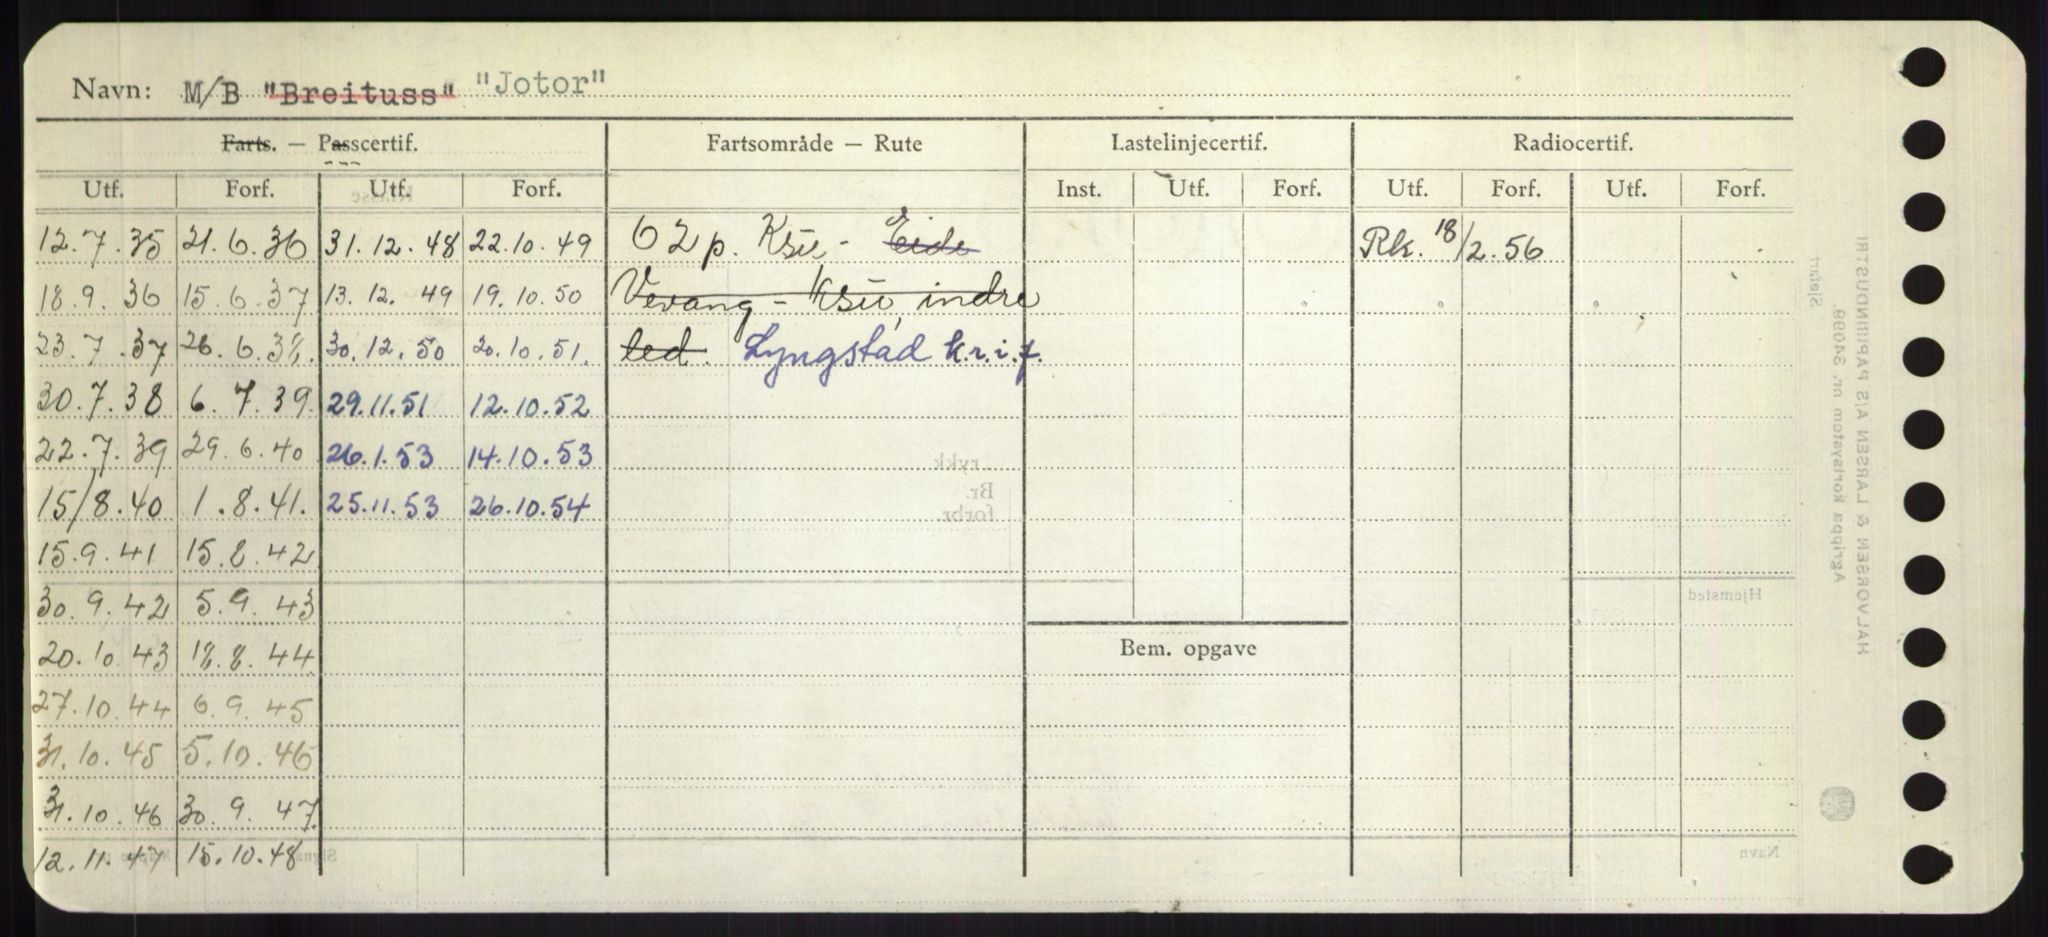 Navn: M/B "Breituss" "Jotor"
Farts. — Passcertif. Fartsområde — Rute Lastelinjecertif. Radiocertif.
Utf. Forf. Utf. Forf. Inst. Utf. Forf. Utf. Forf. Utf. Forf.
12.7.35 21.6.36 31.12.48 22.10.49 62 p. Ksu - Eide Rk. 18/2.56
18.9.36 15.6.37 13.12.49 19.10.50 Vevang - Ksu, indre
23.7.37 26.6.38. 30.12.50 20.10.51. led. Lyngstad k.r.i.f.
30.7.38 6.7.39 29.11.51 12.10.52
22.7.39 29.6.40 26.1.53 14.10.53
15/8.40 1.8.41. 25.11.53 26.10.54
15.9.41 15.8.42
30.9.42 5.9.43
20.10.43 18.8.44
Bem. opgave
27.10.44 6.9.45
31.10.45 5.10.46
31.10.46 30.9.47.
12.11.47 15.10.48
rykk
Br.
forbr.
Hjemsted
Navn
Sjøfart
Agrippa kortsystem nr. 34099.
HALVORSEN & LARSEN A/S PAPIRINDUSTRI